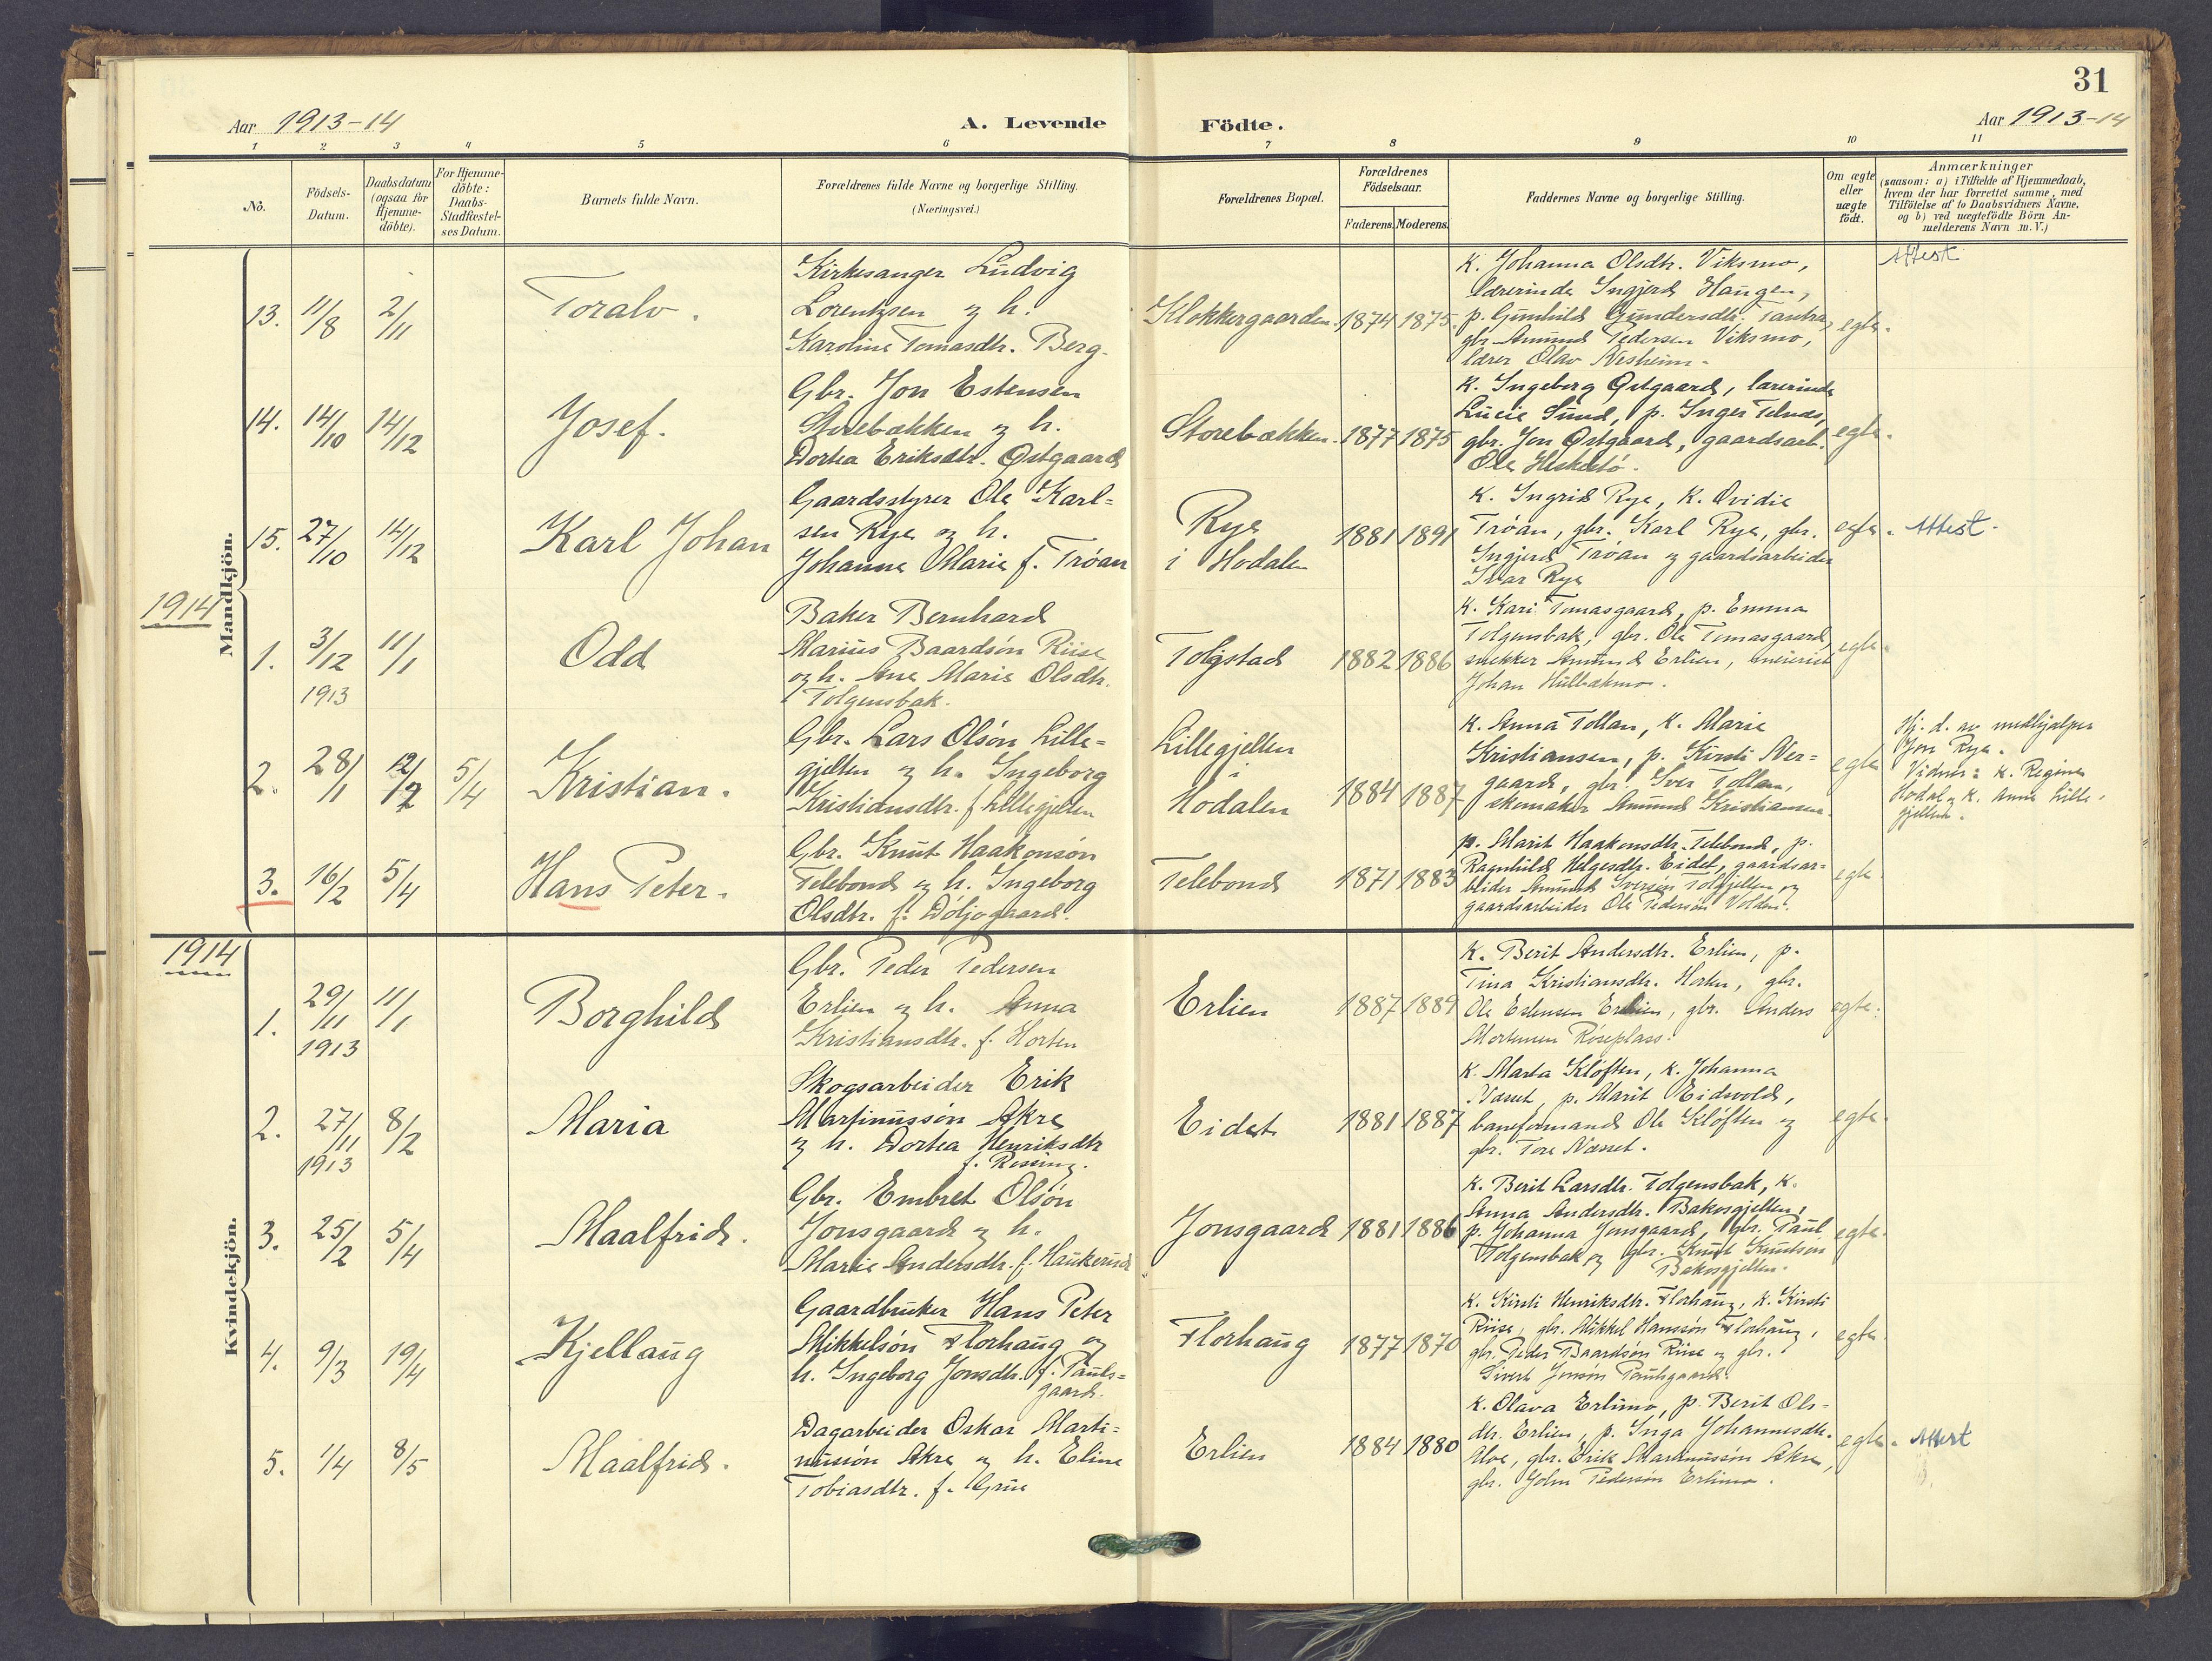 31
Aar 1913-14
A. Levende Födte.
Aar 1913-14
1 2 3 4 5 6 7 8 9 10 11
No.
Födsels-
Datum.
Daabsdatum
(ogsaa for
Hjemme-
döbte).
For Hjemme-
döbte:
Daabs-
Stadfæstel-
ses Datum.
Barnets fulde Navn.
Forældrenes fulde Navne og borgerlige Stilling.
(Næringsvei.)
Forældrenes Bopæl.
Forældrenes
Födselsaar.
Faderens. Moderens.
Faddernes Navne og borgerlige Stilling.
Om ægte
eller
uægte
födt.
Anmærkninger
(saasom: a) i Tilfælde af Hjemmedaab,
hvem der har forrettet samme, med
Tilföielse af to Daabsvidners Navne,
og b) ved uægtefödte Börn An-
melderens Navn m. V.)
Mandkjön.
13.
11/8
2/11
Toralv.
Kirkesanger Ludvig
Lorentzsen og h.
Karoline Tomasdtr. Berg.
Klokkergaarden
1874
1875
K. Johanna Olsdtr. Viksmo,
lærerinde Ingjerd Haugen,
p. Gunhild Gundersdtr.
gbr. Amund Pedersen Viksmo,
lærer Olav Nesheim.
egte.
Attest
14.
14/10
14/12
Josef.
Gbr. Jon Estensen
Storebækken og h.
Dortea Eriksdtr. Østgaard
Storebækken.
1877
1875
K. Ingeborg Østgaard, lærerinde
Lucie Sund, p. Inger Telnæs,
gbr. Jon Østgaard, gaardsarb.
Ole
egte.
15.
27/10
14/12
Karl Johan
Gaardsstyrer Ole Karl=
sen Rye og h.
Johanne Marie f. Tröan
Rye
i Hodalen
1881
1891
K. Ingrid Rye, K. Ovidie
Tröan, gbr. Karl Rye, gbr.
Ingjerd Tröan og gaardsarbeider
Ivar Rye
egte.
Attest.
1914
1.
3/12
1913
11/1
Odd
Baker Bernhard
Marius Baardsön Riise
og h. Ane Marie Olsdtr.
Tolgensbak.
Tolgstad
1882
1886
K. Kari Tomasgaard, p. Emma
Tolgensbak, gbr. Ole Tomasgaard,
snekker Amund Erlien, meierist
Johan Hulbækmo.
egte.
2.
28/1
12/2
5/4
Kristian.
Gbr. Lars Olsön Lille=
gjelten og h. Ingeborg
Kristiansdtr. f. Lillegjelten
Lillegjelten
i
Hodalen
1884
1887
K. Anna Tollan, K. Marie
Kristiansen, p. Kirsti Ner=
gaard, gbr. Iver Tollan,
skomaker Amund Kristiansen.
egte
Hj. d. av medhjælper
Jon Rye.
Vidner: K. Regine
Hodal og K. Anne Lille-
gjelten.
3.
16/2
5/4
Hans Peter.
Gbr. Knut Haakonsön
Telebond og h. Ingeborg
Olsdtr. f. Döljogaard.
Telebond
1871
1883
p. Marit Haakonsdtr. Telebond, p.
Ragnhild Helgesdtr. Eidet, gaardsar=
beider Amund Iversen Tolgjellen og
gaardsarbeider Ole Pedersön Volden.
egte
1914
Kvindekjön.
1.
29/11
1913
11/1
Borghild
Gbr. Peder Pedersen
Erlien og h. Anna
Kristiansdtr. f. Horten
Erlien
1887
1889
K. Berit Andersdtr. Erlien, p.
Tina Kristiansdtr. Horten, gbr.
Ole Estensen Erlien, gbr. Anders
Mortensen Röseplass.
egte.
2.
27/11
1913
8/2
Maria
Skogsarbeider Erik
Martinussön Akre
og h. Dortea Henriksdtr
f. Rosing.
Eidet
1881
1887
K. Marta Klöften, K. Johanna
Næsset, p. Marit Eidsvold,
baneformand Ole Klöften og
gbr. Tore Næsset.
egte.
3.
25/2
5/4
Maalfrid.
Gbr. Embret Olsön
Jonsgaard og h.
Marie Andersdtr. f. Haukerud
Jonsgaard
1881
1886
K. Berit Larsdtr. Tolgensbak, K.
Anna Andersdtr. Bakosgjelten,
p. Johanna Jonsgaard, gbr. Paul
Tolgensbak og gbr. Knut Knutsön
Bakosgjelten.
egte.
4.
9/3
19/4
Kjellaug
Gaardbruker Hans Peter
Mikkelsön Florhaug og
h. Ingeborg Jonsdtr. f. Pauls=
gaard.
Florhaug
1877
1870
K. Kirsti Henriksdtr. Florhaug, K. Kirsti
Riise, gbr. Mikkel Hanssön Florhaug,
gbr. Peder Baardsön Riise og gbr.
Sivert Jonsön Paulsgaard.
egte
5.
1/4
8/5
Maalfrid.
Dagarbeider Oskar Marti=
nussön Akre og h. Eline
Tobiasdtr. f. Grue
Erlien
1884
1880
K. Olava Erlimo, p. Berit Ols=
dtr. Erlien, p. Inga Johannesdtr.
Moe, gbr. Erik Martinussön Akre,
gbr. John Pedersön Erlimo.
egte.
Attest